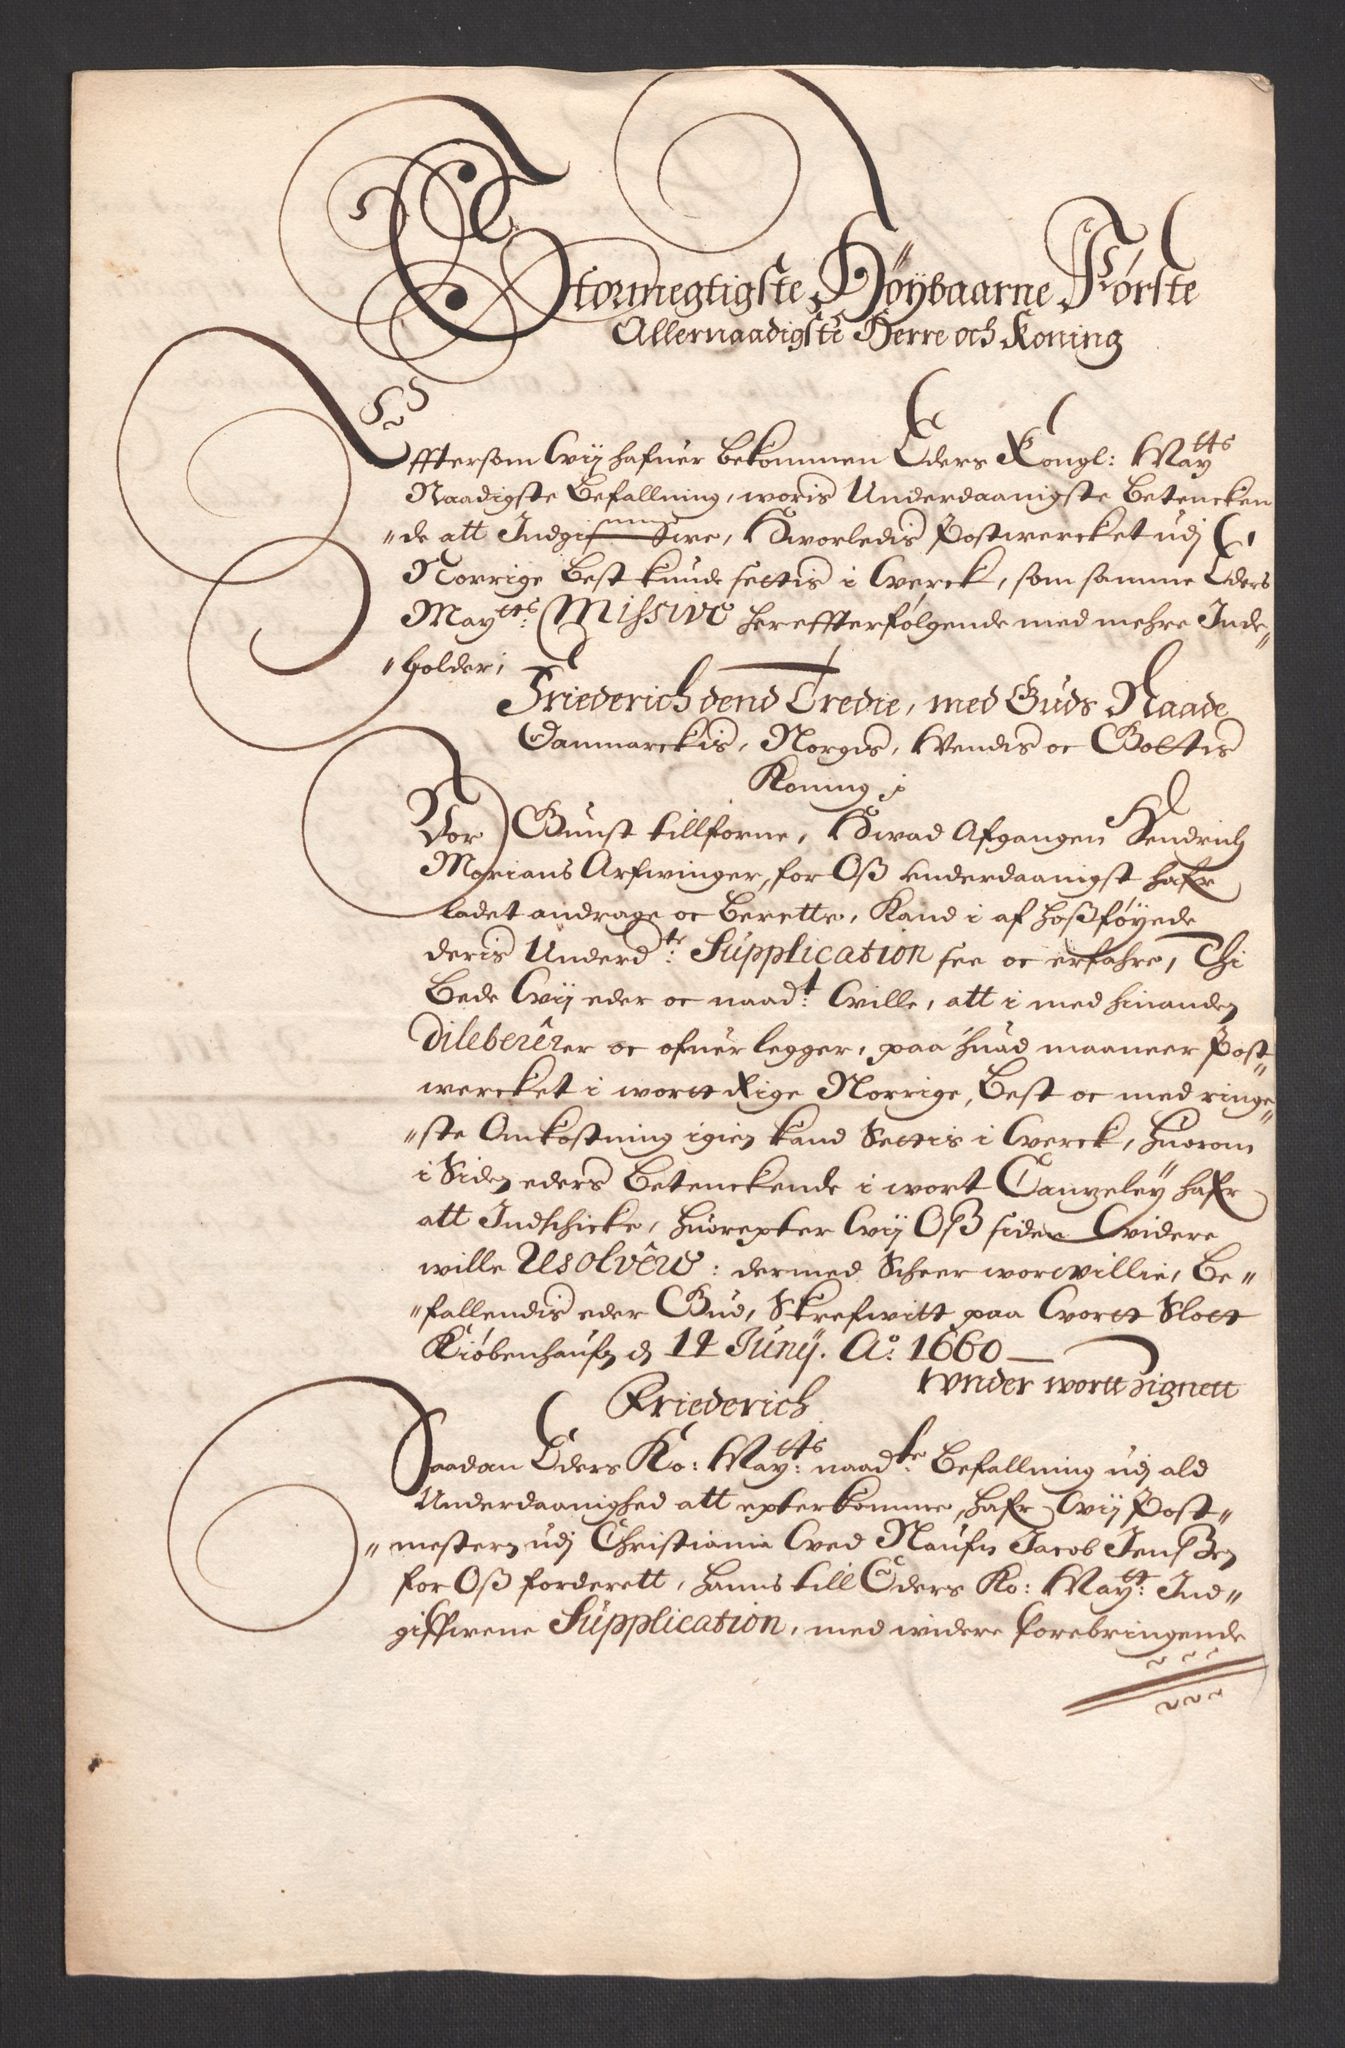 Stormegtigste Høybaarne Første
Allernaadigste Herre och Koning
Efftersom Wij hafuer bekommen Eders Kongl: May:tts
Naadigste Befallning, woris Underdaanigste Betencken
"de att Indgifwe, Hworledis Postwercket udj
Norrige best kunde settis i Werck, som samme Eders
May:tts Missive herefterfølgende med mehre Inde"
"holder;
Friederich dend Tredie, med Guds Naade
Danmarckis, Norgis, Wendis oc Gottis
Koning ;
Vor Gunst tillforne, Hwad Afgangen Hendrich
Morians Arfwinger, for Oß underdaanigst hafr
ladet andrage oc berette, Kand i af hoßføyede
deris Underd:te Supplication see oc erfahre, Thi
Bede Wij eder oc naad:t Wille, att i med hinanden
dilebererer oc ofuerlegger, paa huad maaneer Post"
wercket i wortt Rige Norrige, Best oc med ringe"
"ste Omkostning igien kand Settis i Werck, huorom
i Siden eders Betenckende i wort Cantzeleÿ hafr
att Indschicke, huorepter Wij Oß siden Widere
wille Resolvere: dermed Scheer wor Willie, Be"
"fallendis eder Gud, Skrefwitt paa Wortt Slott
Kiøbenhaufn d 14 Junÿ. Ao: 1660
Under wortt Zignett
Friederich
Saadan Eders Ko: May:tts naad:te Befallning udj ald
Underdaanighed att epterkomme, hafr Wij Post"
"mesteren udj Christiania Wed Naufn Jacob Jenßen
for Oß forderett, hanns till Eders Ko: May:tt Ind"
giffwene Supplication, med widere forebringende